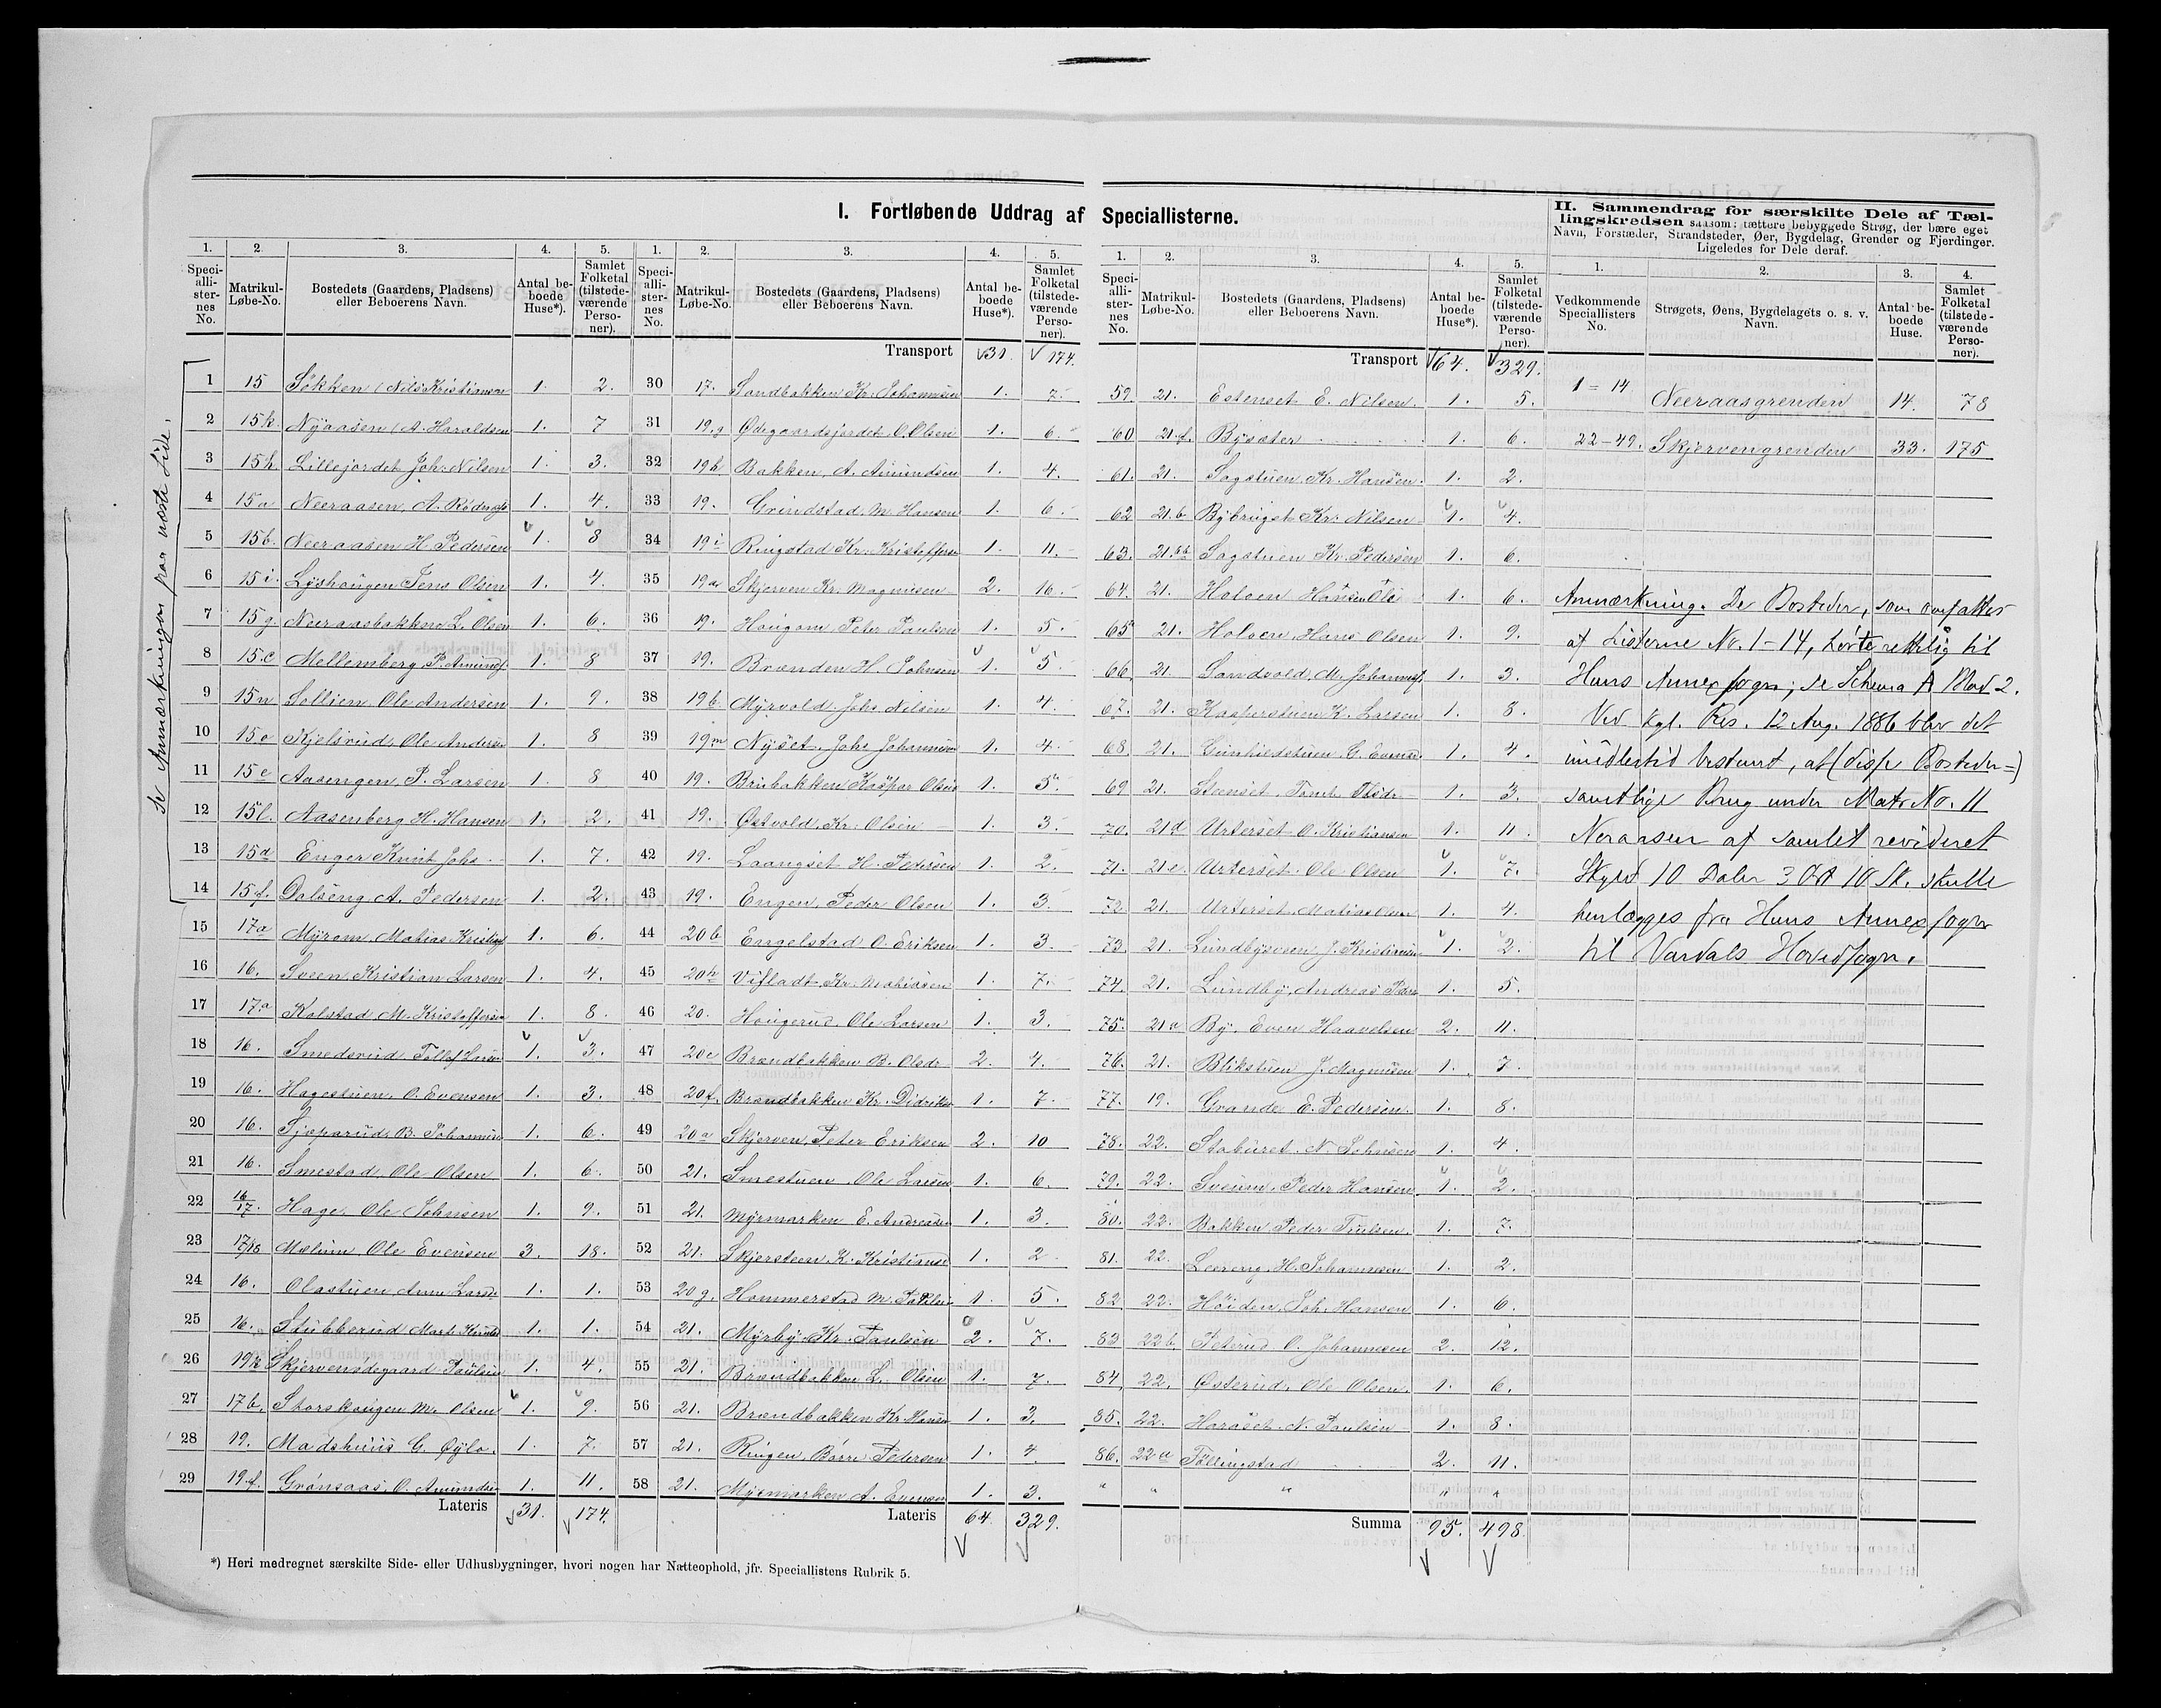 I. Fortløbende Uddrag af Speciallisterne.
Se Anmærkningen paa næste Side.
1. 2. 3. 4. 5.
Speciallisternes No. Matrikul-Løbe-No. Bostedets (Gaardens, Pladsens) eller Beboerens Navn. Antal beboede Huse*). Samlet Folketal (tilstedeværende Personer).
1 15 Søkken (Nils Kristiansen 1. 2.
2 15k. Nyaasen (A. Haraldsen 1. 7
3 15h. Lillejordet Joh. Nilsen 1. 3.
4 15a Neeraasen, A. 1. 4.
5 15b. Neeraasen H. Pedersen 1. 8
6 15i. Lyshaugen Jens Olsen 1. 4.
7 15g. Neeraasbakken L. Olsen 1. 6.
8 15c Mellemberg P. Amunds. 1. 8
9 15n Sollien Ole Andersen 1. 9.
10 15o Kjelsrud, Ole Anders. 1. 8
11 15e Aasengen, P. Larsen 1. 8
12 15l. Aasenberg H. Hansen 1. 2.
13 15d Enger Knut Johs. 1. 7.
14 15f. Dalseng A. Pedersen 1. 2.
15 17a Myrom, Mathias 1. 6.
16 16. Sveen, Kristian Larsen 1. 4.
17 17a Kolstad M. Kristoffersen 1. 8.
18 16. Smedsrud 1. 3.
19 16. Hagestuen, O. Evensen 1. 3.
20 16. B. Johannsen 1. 6.
21 16. Smestad, Ole Olsen 1. 6.
22 16/17. Hage, Ole Johnsen 1. 9.
23 17/18 Mælum Ole Evensen 3. 18.
24 16. Olastuen Anne Larsd. 1. 1.
25 16. Stubberud Mart. 1. 1.
26 19k Skjervensødegaard Paulsen 1. 4.
27 17b. Storskougen M. Olsen 1. 9.
28 19. Madshuus G. 1. 7.
29 19f. Grønsaas, O. Amundsen 1. 11.
Lateris 31. 174.
*) Heri medregnet særskilte Side- eller Udhusbygninger, hvori nogen har Natteophold, jfr. Speciallistens Rubrik 5.
1. 2. 3. 4. 5.
Speciallisternes No. Matrikul-Løbe-No. Bostedets (Gaardens, Pladsens) eller Beboerens Navn. Antal beboede Huse*). Samlet Folketal (tilstedeværende Personer).
Transport 31. 174.
30 17. Sandbakken Kr. Johannesen 1. 2.
31 19g Ødegaardsjordet O. Olsen 1. 6.
32 19h Bakken, A. Amundsen 1. 4.
33 19. Grindstad, M. Hansen 1. 6.
34 19i Ringstad Kr. Kristoffers. 1. 11.
35 19a Skjerven Kr. Magnusen 2. 16.
36 19. Hougom Peter Paulsen 1. 5.
37 19. Brænden H. Johnsen 1. 5.
38 19b Myrvold Joh. Nilsen 1. 4.
39 19m Nyset. Johs Johannesen 1. 4.
40 19. Brubakken Kasper Olsen 1. 5.
41 19. Østvold, Kr. Olsen 1. 3.
42 19. Laangset H. Pedersen 1. 2.
43 19. Engen, Peder Olsen 1. 3.
44 20b Engelstad O. Eriksen 1. 3.
45 20h Vifladt Kr. Mathiasen 1. 7.
46 20. Hougerud, Ole Larsen 1. 3.
47 20c Brændbakken B. Olsdr. 2. 4.
48 20f. Brændbakken Kr. Didriksen 1. 7.
49 20a Skjerven, Peter Eriksen 2. 10
50 21. Smestuen, Ole Larsen 1. 6.
51 21. Myrmarken E. Andreasen 1. 3.
52 21. Skjersteen K. Kristians. 1. 2
53 20g. Hammerstad M. 1. 5.
54 21. Myrby Kr. Paulsen 2. 7.
55 21. Brændbakken L. Olsen 1. 7.
56 21. Brændbakken Kr. Hansen 1. 3.
57 21. Ringen, Børre Pedersen 1. 4.
58 21. Myrmarken A. Evensen 1. 3.
Lateris 64. 329.
1. 2. 3. 4. 5.
Speciallisternes No. Matrikul-Løbe-No. Bostedets (Gaardens, Pladsens) eller Beboerens Navn. Antal beboede Huse*). Samlet Folketal (tilstedeværende Personer).
Transport 64. 329.
59. 21. Estenset E. Nilsen. 1. 5.
60 21f. Bysæter 1. 6.
61. 21. Sagstuen, Kr. Hansen. 1. 2.
62 21b Bybruget Kr. Nilsen 1. 4.
63. 21bb Sagstuen Kr. Pedersen 1. 6.
64. 21. Holven Hansen Ole 1. 6.
65 21. Holven, Hans Olsen 1. 9.
66 21. Sandvold, M. Johannes. 1. 3.
67. 21. Kasperstuen K. Larsen 1. 8.
68. 21. Gunhildstuen, G. Evensd. 1. 4.
69 21. Steenset 1. 3.
70. 21d Urterset O. Kristiansen 1. 11.
71. 21e. Urterset. Ole Olsen 1. 7.
72 21. Urterset, Matias Olsen 1. 4.
73. 21. Lundbysveen J. Kristiansen 1. 2.
74. 21. Lundby, Andreas Peders. 1. 5.
75. 21a By, Even Haavelsen 2. 11.
76. 21. Blikstuen J. Magnusen 1. 7.
77. 19. Grande E. Pedersen. 1. 8.
78. 22. Staburet. N. Johnsen 1. 4.
79. 22. Sveum, Peder Hansen 1. 2.
80. 22. Bakken Peder Truelsen. 1. 7.
81. 22. Leereng. H. Johannesen 1. 2.
82 22. Høiden, Joh. Hansen 1. 6.
83 22b Peterud O. Johannesen 2. 12.
84 22. Østerud, Ole Olsen. 1. 6.
85. 22. Haraset. N. Paulsen 1. 8.
86. 22a Føllingstad 2. 11.
" " " " "
Summa 95. 498.
II. Sammendrag for særskilte Dele af Tællingskredsen saasom: tættere bebyggede Strøg, der bære eget Navn, Forstæder, Strandsteder, Øer, Bygdelag, Grender og Fjerdinger. Ligeledes for Dele deraf.
1. 2. 3. 4.
Vedkommende Speciallisters No. Strøgets, Øens, Bygdelagets o. s. v. Navn. Antal beboede Huse. Samlet Folketal (tilstedeværende Personer).
1 = 14 Neeraasgrenden 14. 78
22-49. Skjervengrenden 33. 175
Anmærkning. De Bosteder, som omfattes
af Listerne No. 1-14, hørte rettelig til
Huns Annexsogn; se Schema A Blad 2.
Ved Kgl. Res. 12 Aug. 1886 blev det
imidlertid bestemt, at (disse Bosteder =)
samtlige Brug under Matr. No. 11
Neraasen af samlet revideret
Skyld 10 Daler 3 Ort 10 Sk. skulle
henlægges fra Huns Annexsogn
til Vardals Hovedsogn.